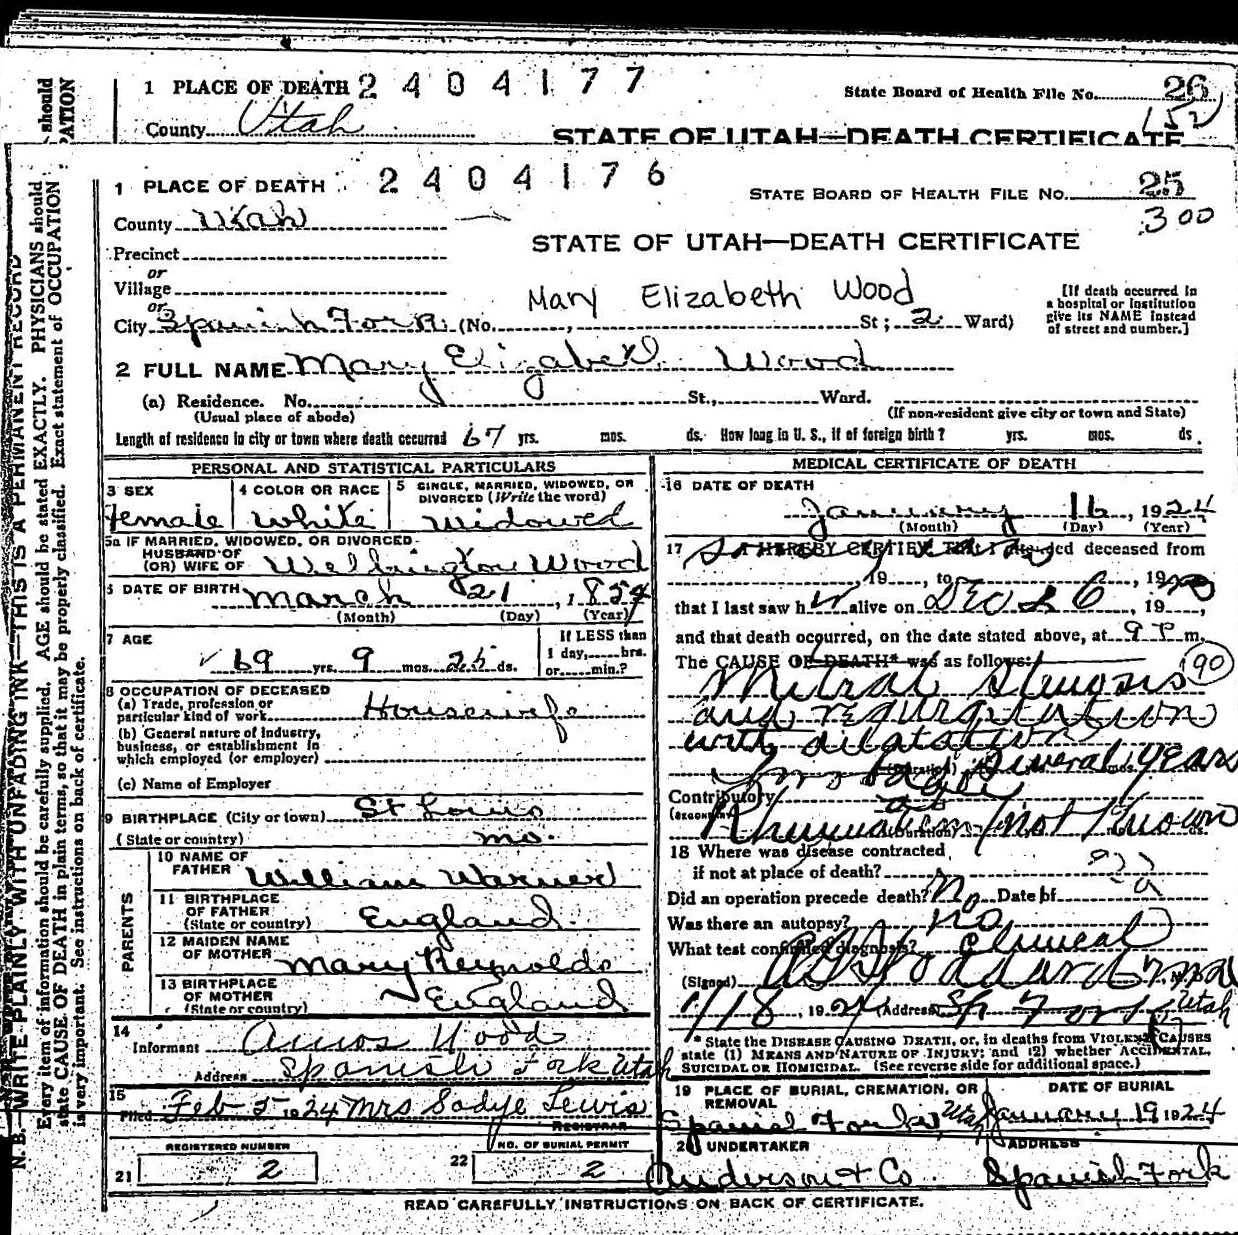 1 PLACE OF DEATH 2404177
State Board of Health File No. 26
152
County Utah
STATE OF UTAH—DEATH CERTIFICATE
1 PLACE OF DEATH 2404176
STATE BOARD OF HEALTH FILE NO. 25
300
County Utah
STATE OF UTAH—DEATH CERTIFICATE
Precinct
or
Village
Mary Elizabeth Wood
[If death occurred in
a hospital or institution
give its NAME instead
of street and number.]
or
City Spanish Fork (No. , St; 2 Ward)
2 FULL NAME Mary Elizabeth Wood
(a) Residence. No. St., Ward.
(Usual place of abode) (If non-resident give city or town and State)
Length of residence in city or town where death occurred 67 yrs. mos. ds. How long in U. S., if of foreign birth? yrs. mos. ds
PERSONAL AND STATISTICAL PARTICULARS
3 SEX
4 COLOR OR RACE
5 SINGLE, MARRIED, WIDOWED, OR
DIVORCED (Write the word)
Female White Widowed
5a IF MARRIED, WIDOWED, OR DIVORCED
HUSBAND OF
(OR) WIFE OF Wellington Wood
6 DATE OF BIRTH March 21, 1854
(Month) (Day) (Year)
7 AGE
If LESS than
1 day, hrs.
or min.?
69 yrs. 9 mos. 25 ds.
8 OCCUPATION OF DECEASED
(a) Trade, profession or
particular kind of work Housewife
(b) General nature of industry,
business, or establishment in
which employed (or employer)
(c) Name of Employer
9 BIRTHPLACE (City or town) St Louis
(State or country) mo.
PARENTS
10 NAME OF
FATHER William Warner
11 BIRTHPLACE
OF FATHER
(State or country) England
12 MAIDEN NAME
OF MOTHER Mary Reynolds
13 BIRTHPLACE
OF MOTHER
(State or country) England
14
Informant Amos Wood
Address Spanish Fork Utah
15
Filed Feb 5 1924 Mrs Sadye Lewis
REGISTRAR
REGISTERED NUMBER
NO. OF BURIAL PERMIT
21 2 22 2
MEDICAL CERTIFICATE OF DEATH
16 DATE OF DEATH
January 16, 1924
(Month) (Day) (Year)
17 I HEREBY CERTIFY That I attended deceased from
, 19 , to , 19
that I last saw h alive on Dec 26, 19 ,
and that death occurred, on the date stated above, at 9 P m.
The CAUSE OF DEATH* was as follows:
90
Mitral Stenosis
and regurgitation
with dilatation
several years
Contributory
Rheumatism (not Known
18 Where was disease contracted
if not at place of death? ??
Did an operation precede death? No Date of
Was there an autopsy? no
What test confirmed diagnosis? Clinical
(Signed)
1/18, 1924 (Address) Sp Fork Utah
* State the DISEASE CAUSING DEATH, or, in deaths from VIOLENT CAUSES
state (1) MEANS AND NATURE OF INJURY; and (2) whether ACCIDENTAL,
SUICIDAL OR HOMICIDAL. (See reverse side for additional space.)
19 PLACE OF BURIAL, CREMATION, OR
REMOVAL
DATE OF BURIAL
Spanish Fork Utah January 19 1924
20 UNDERTAKER
ADDRESS
Anderson & Co. Spanish Fork
READ CAREFULLY INSTRUCTIONS ON BACK OF CERTIFICATE.
N. B.—WRITE PLAINLY WITH UNFADING INK—THIS IS A PERMANENT RECORD
Every item of information should be carefully supplied. AGE should be stated EXACTLY. PHYSICIANS should
state CAUSE OF DEATH in plain terms, so that it may be properly classified. Exact statement of OCCUPATION
is very important. See instructions on back of certificate.
should
PATION